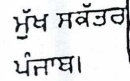 ਮੁੱਖ ਸਕੱਤਰ
ਪੰਜਾਬ।